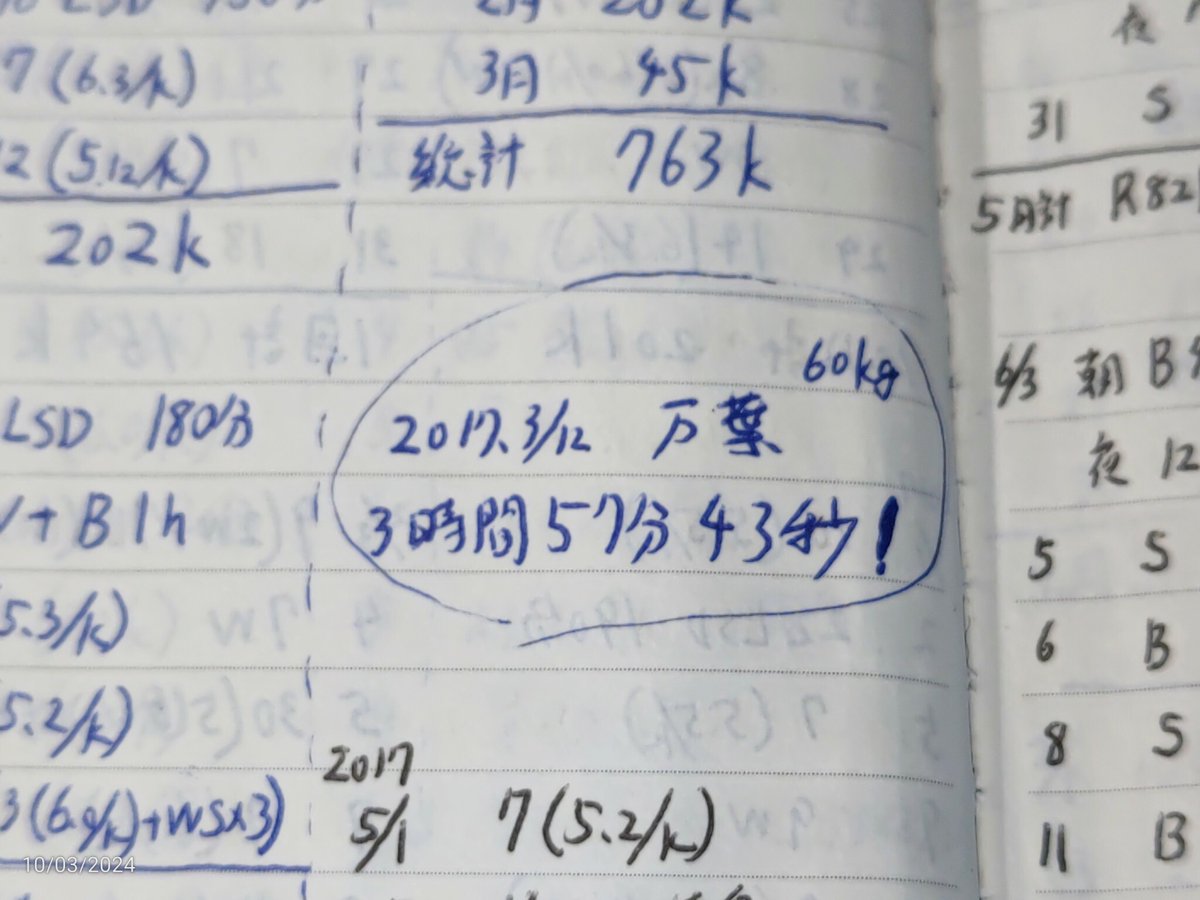 7 (6.3/k)
12 (5.12/k)
202k
LSD 180分
+ B 1h
5.3/k)
5.2/k)
3 (6.9/k)+WS×3)
2月 202k
3月 45k
総計 763k
60kg
2017.3/12 万葉
3時間57分43秒!
2017
5/1 7 (5.2/k)
夜
31 S
5月計 R82
6/3 朝 B
夜 12
5 S
6 B
8 S
11 B
10/03/2024